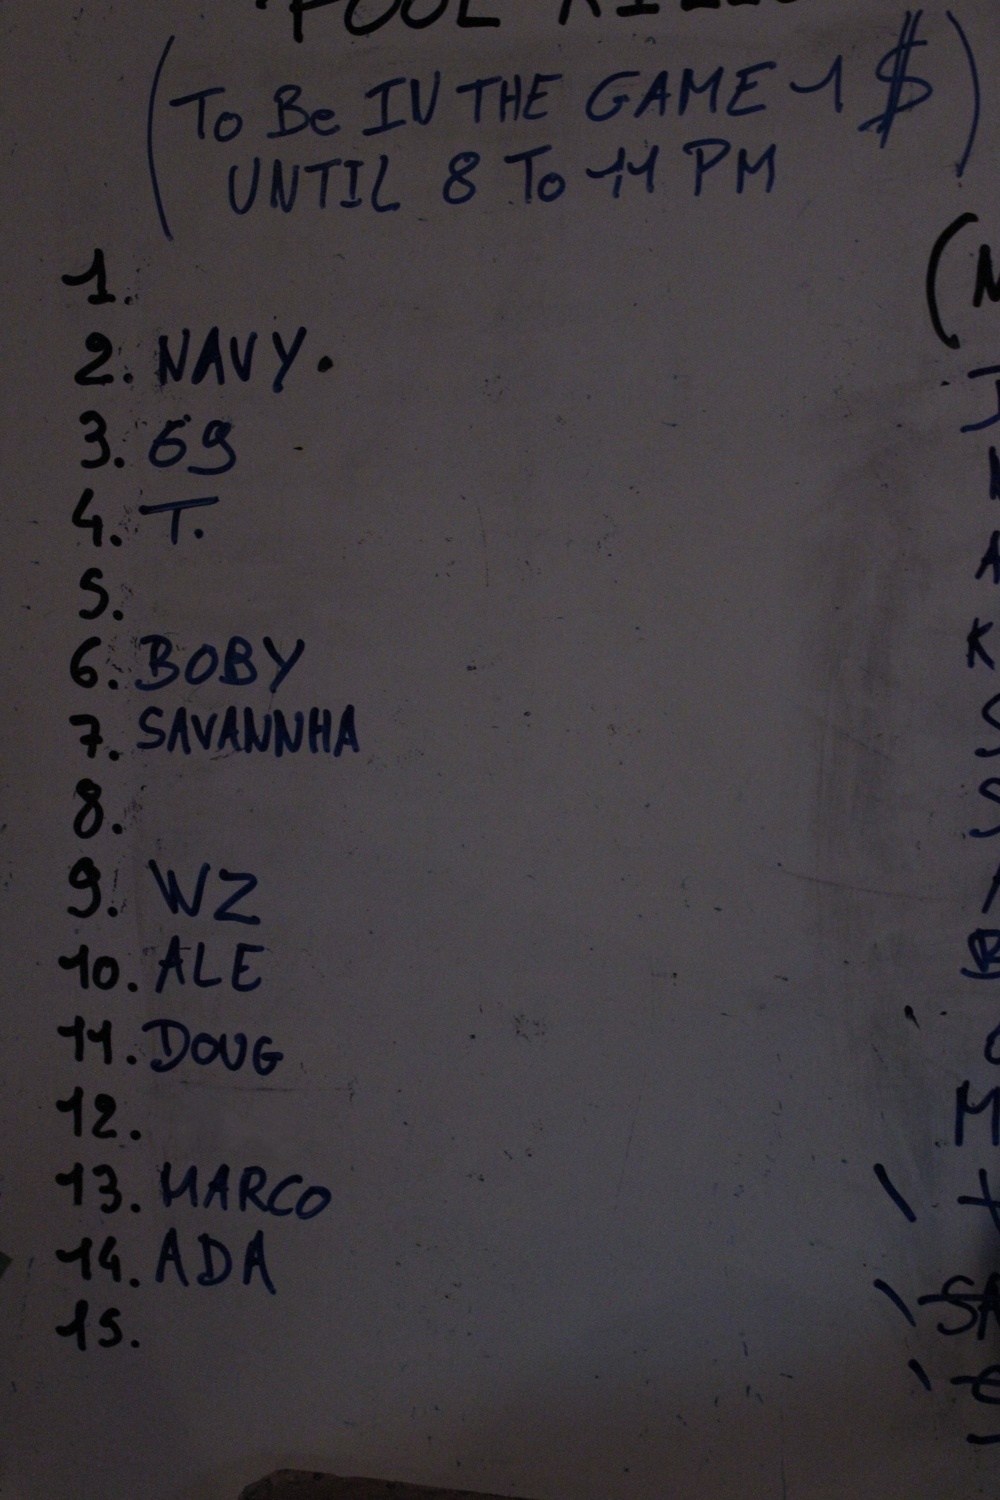 POOL
(To Be IN THE GAME 1 $)
UNTIL 8 To 11 PM
1.
2. NAVY.
3. 69
4. T.
5.
6. BOBY
7. SAVANNHA
8.
9. WZ
10. ALE
11. DOUG
12.
13. MARCO
14. ADA
15.